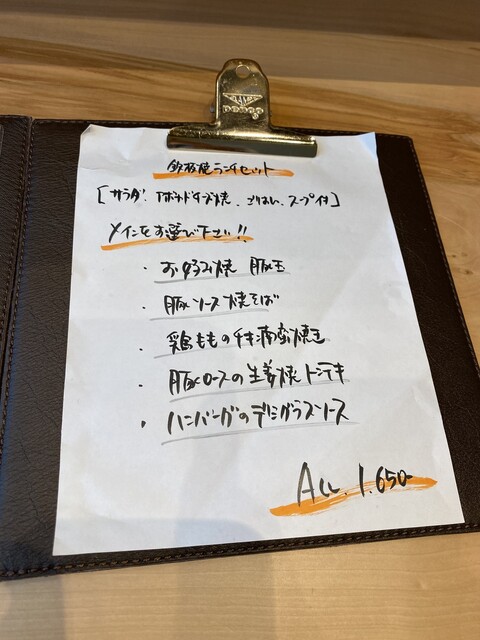 DAMES
PENCO
鉄板焼ランチセット
[サラダ、アボカドチーズ焼、ごはん、スープ付]
メインをお選び下さい!!
・お好み焼 豚玉
・豚ソース焼そば
・鶏もものチキン南蛮焼き
・豚ロースの生姜焼トンテキ
・ハンバーグのデミグラスソース
ALL. 1.650-